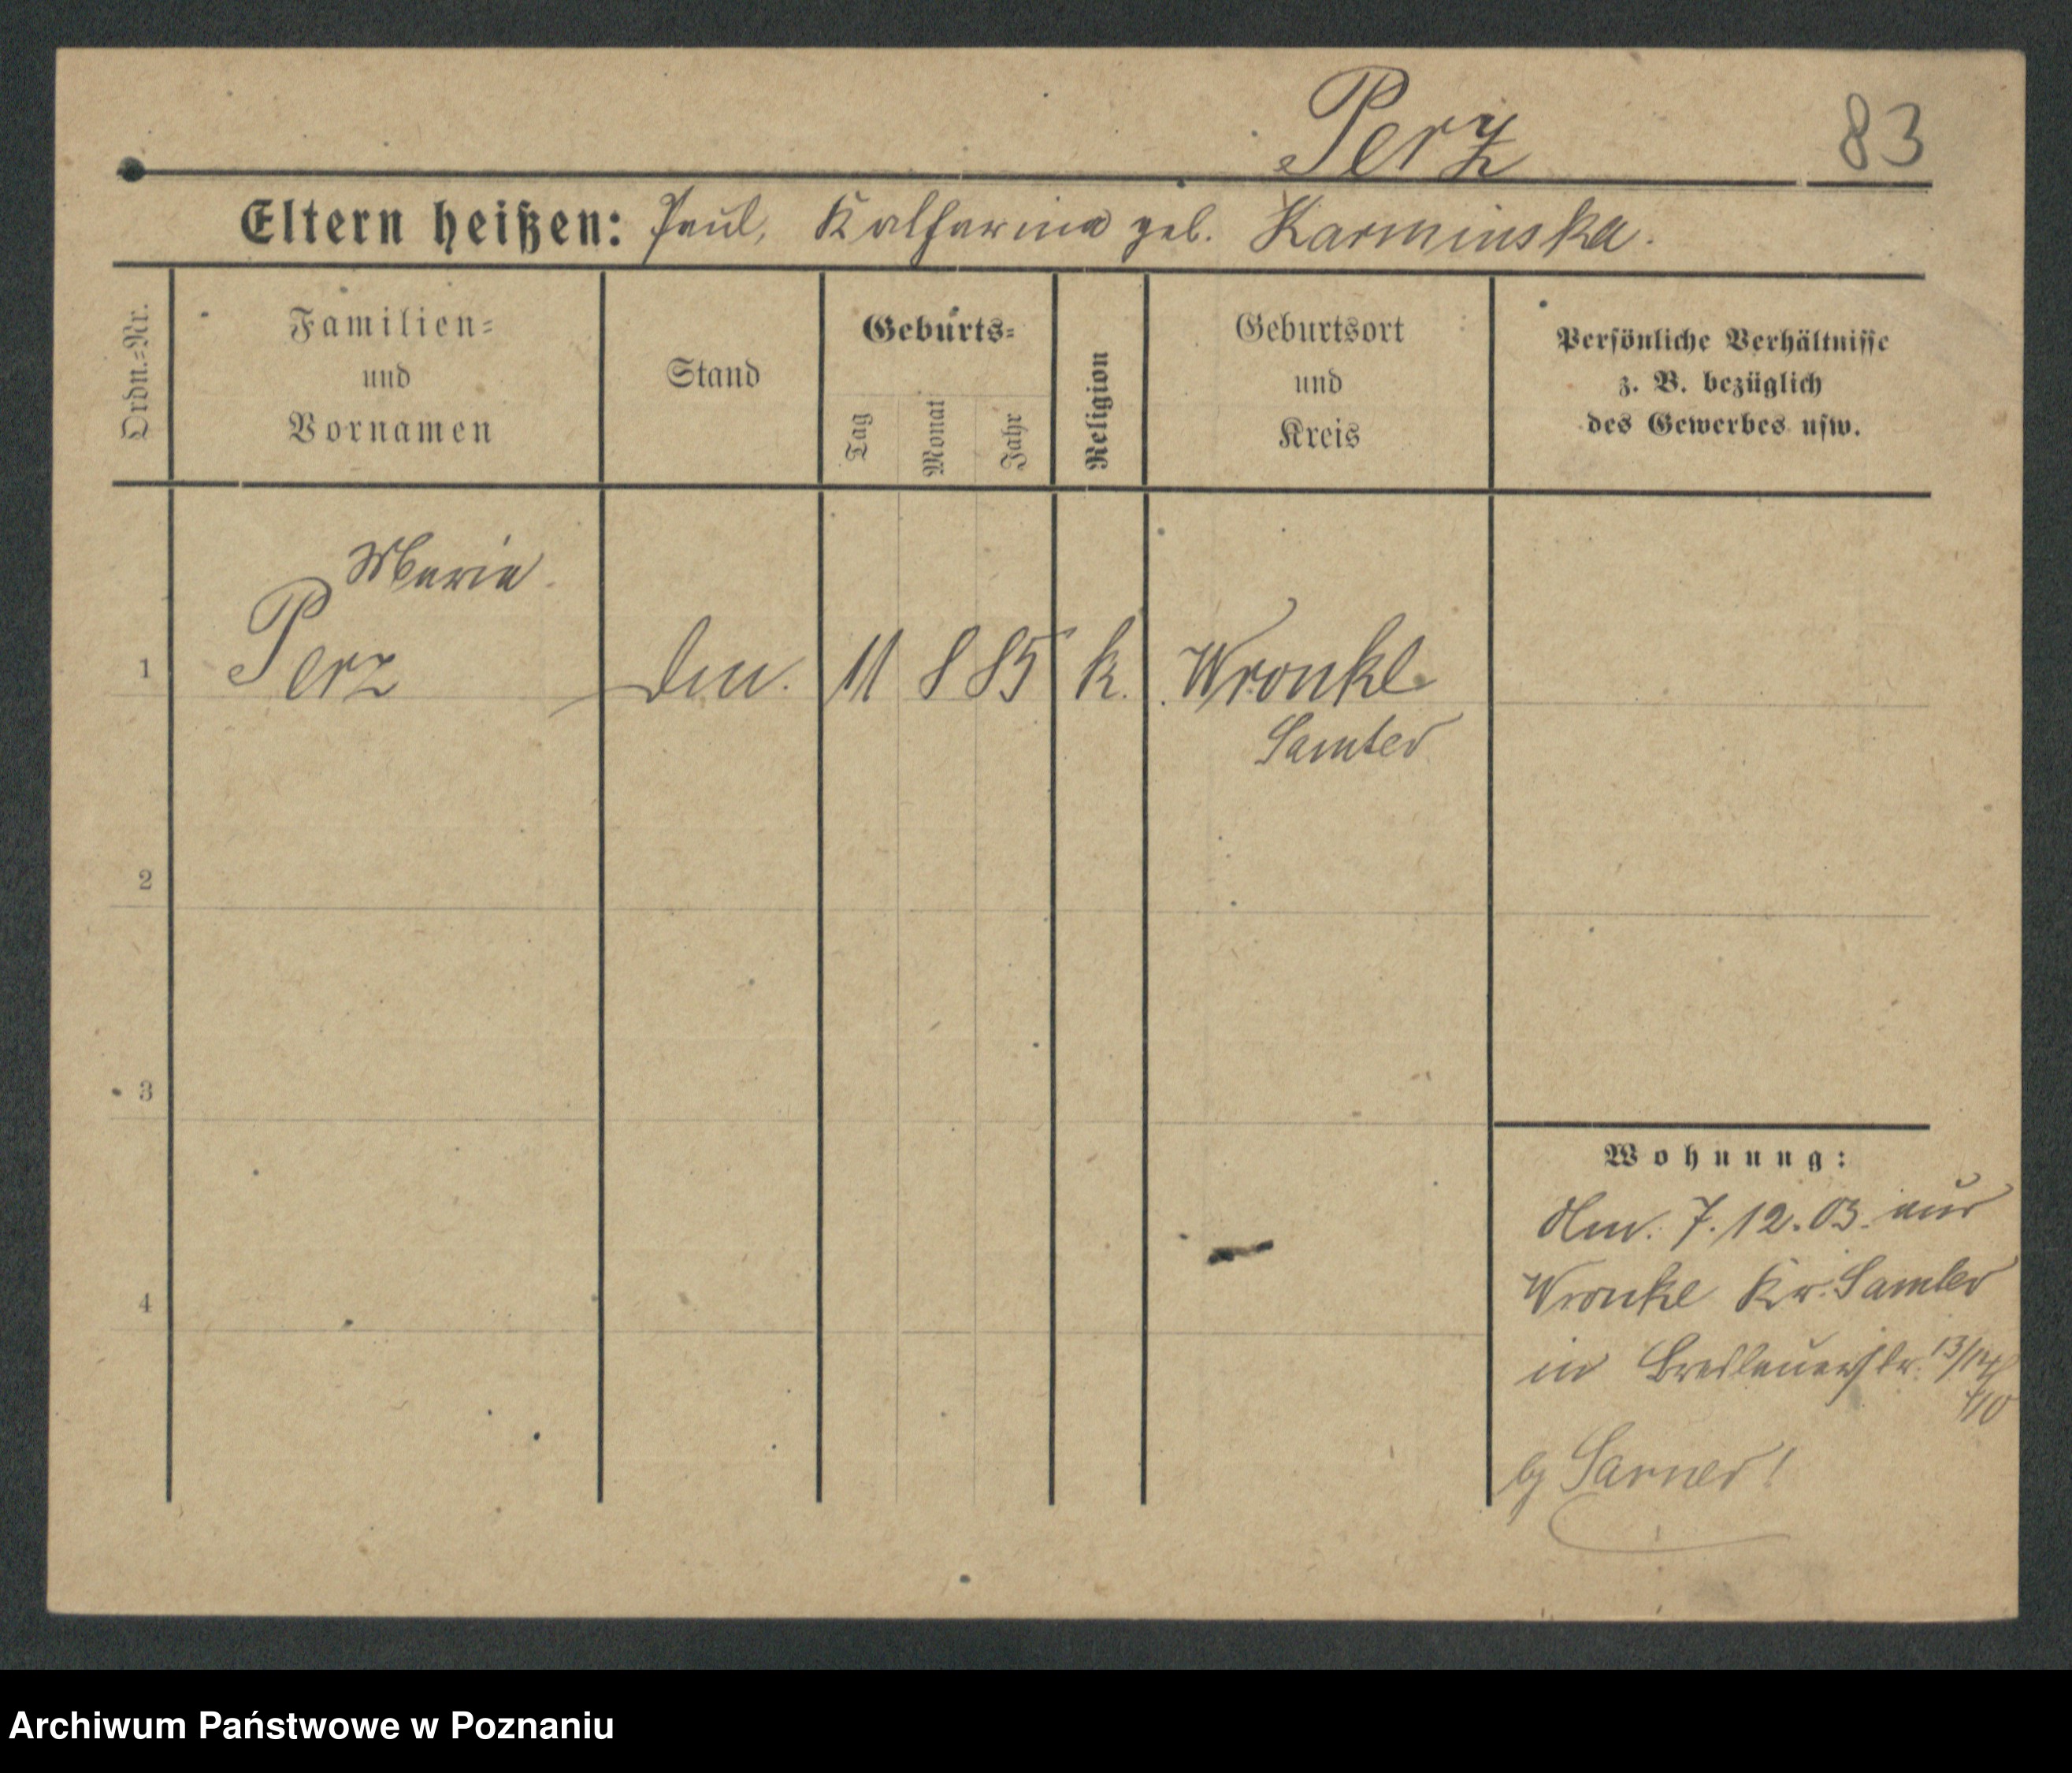 Perz 83
Eltern heißen: Paul, Katharina geb. Karminska.
Ordn.=Nr.
Familien=
und
Vornamen
Stand
Geburts=
Tag
Monat
Jahr
Religion
Geburtsort
und
Kreis
Persönliche Verhältnisse
z. B. bezüglich
des Gewerbes usw.
Marie
1 Perz 11 8 85 k. Wronke
Samter
2
3
4
Wohnung:
7.12.03. aus
Wronke Kr. Samter
in Breslauerstr. 13/14
Sarner!
Archiwum Państwowe w Poznaniu